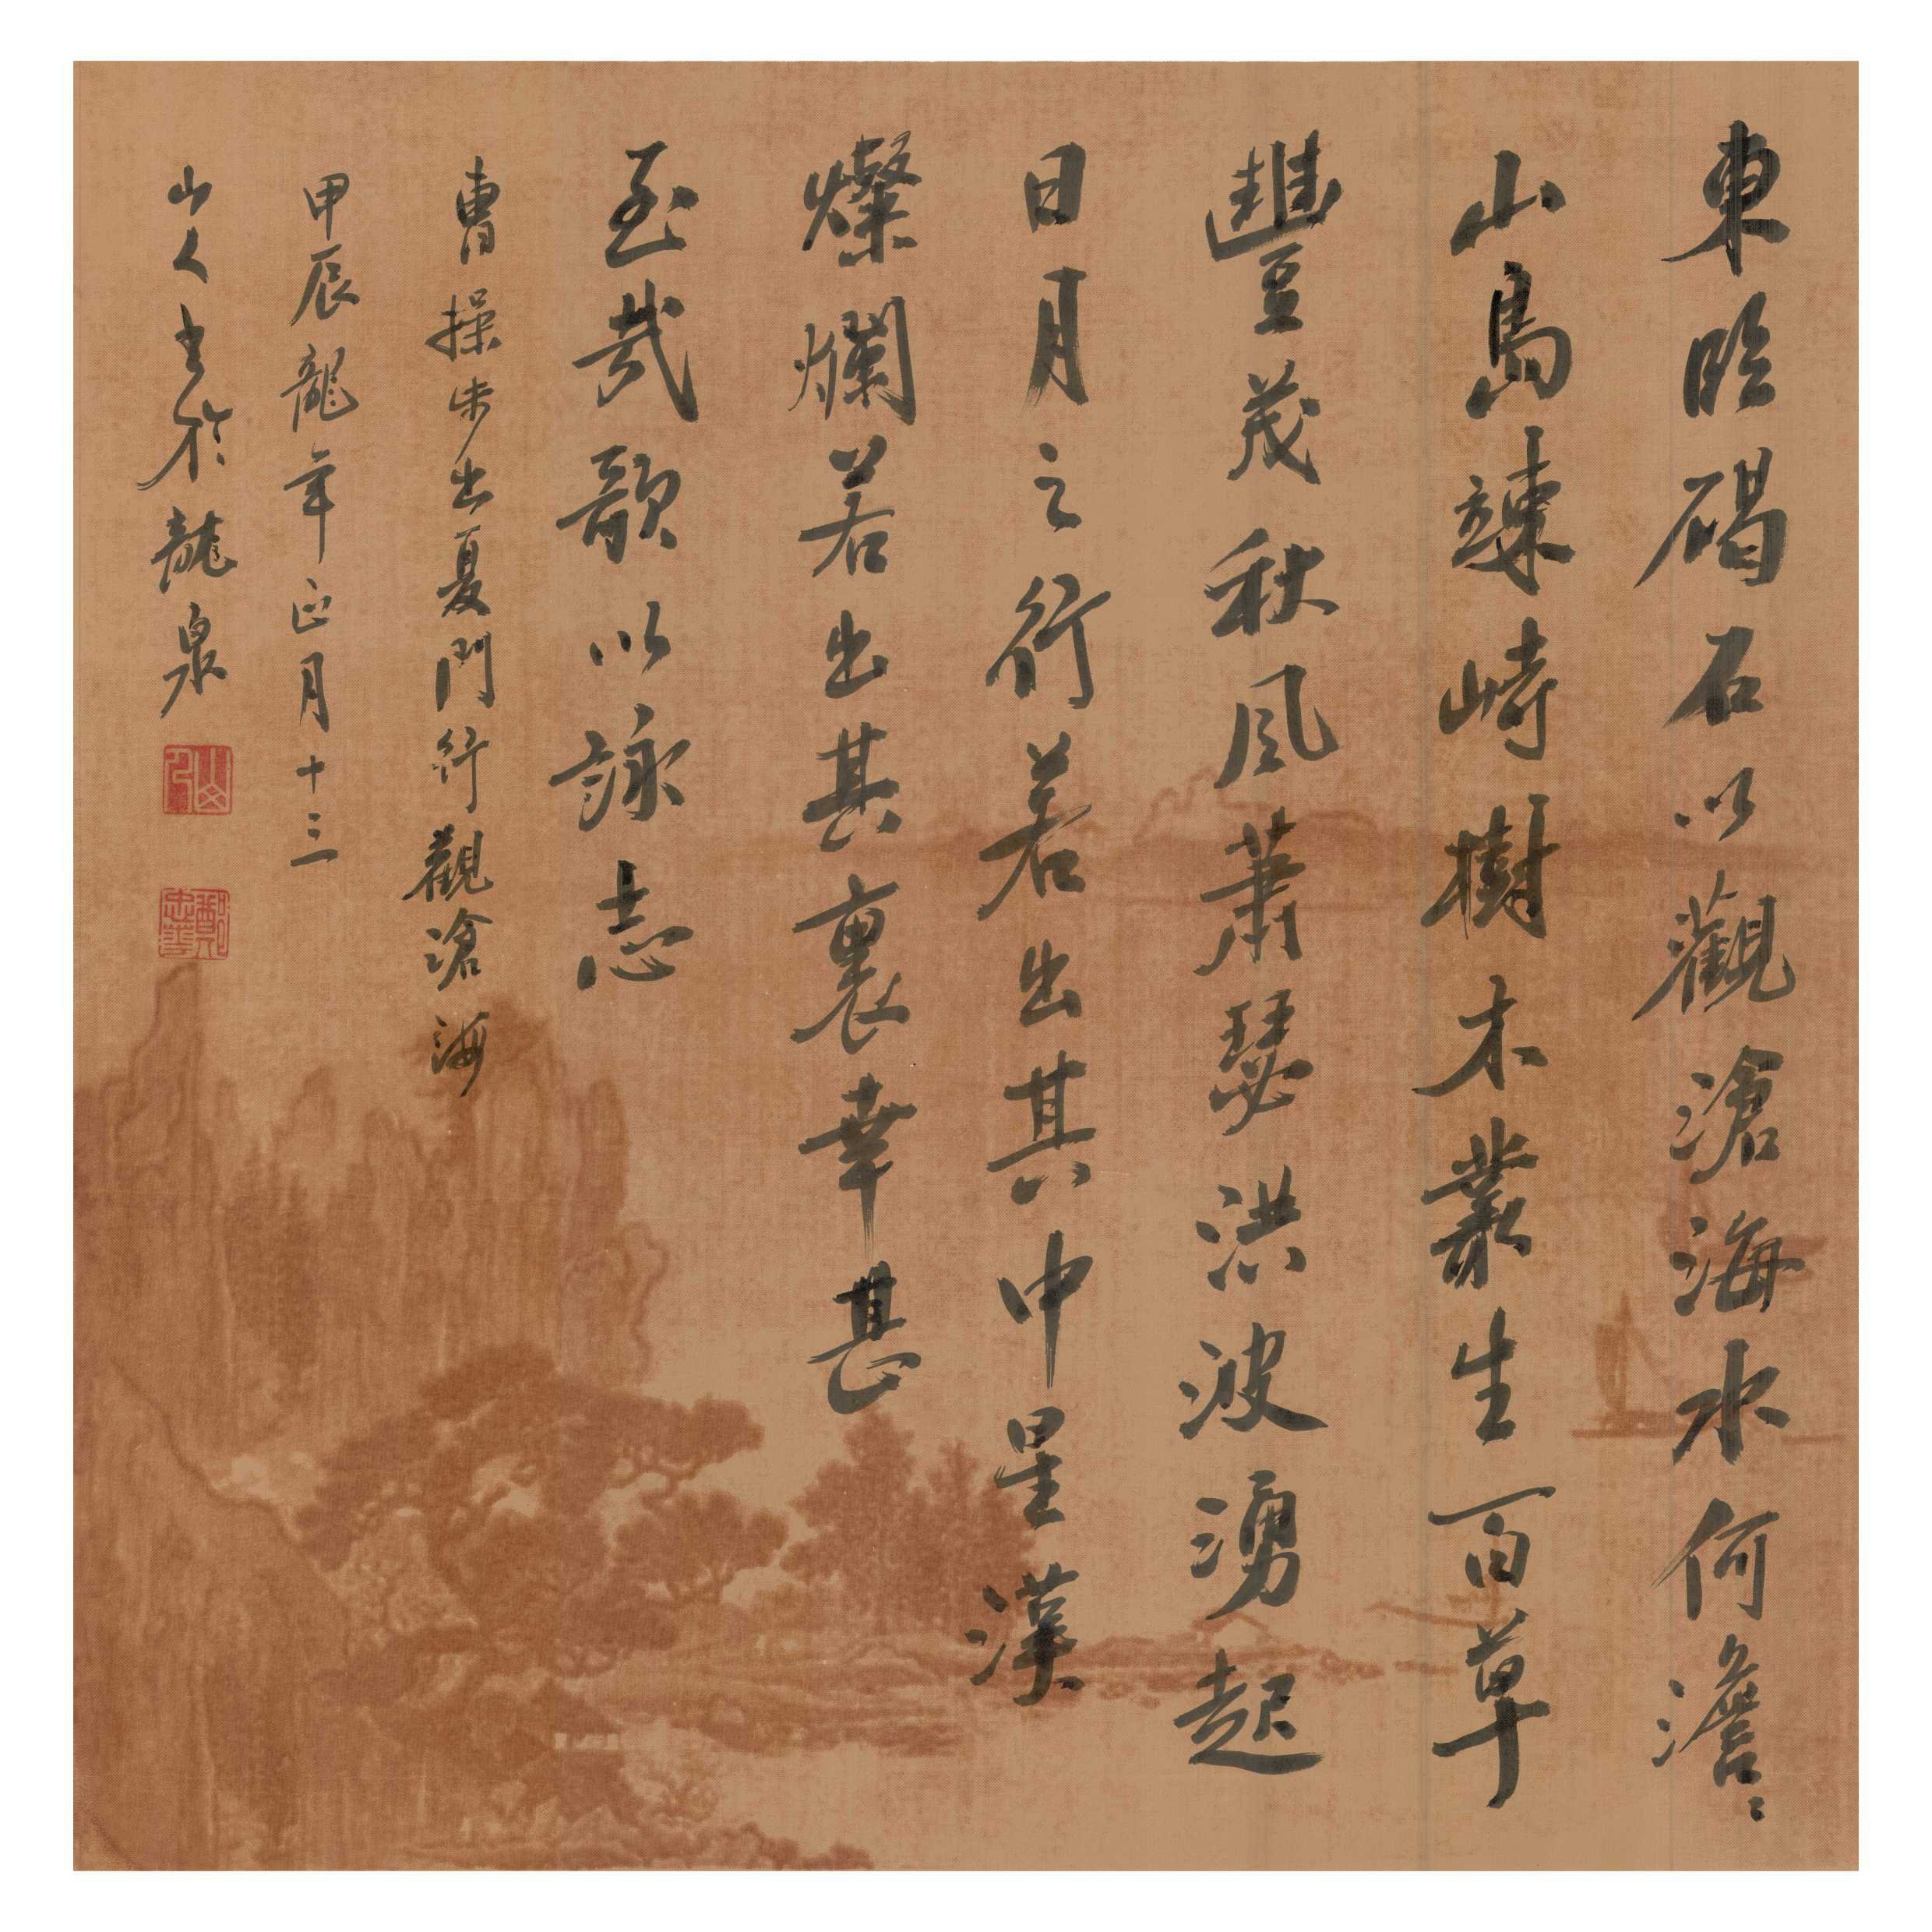 東臨碣石以觀滄海水何澹〻
山島竦峙樹木叢生百草
豐茂秋風蕭瑟洪波湧起
日月之行若出其中星漢
燦爛若出其裏幸甚
至哉歌以詠志
曹操步出夏門行觀滄海
甲辰龍年正月十三
山人书於龍泉
鄭忠華